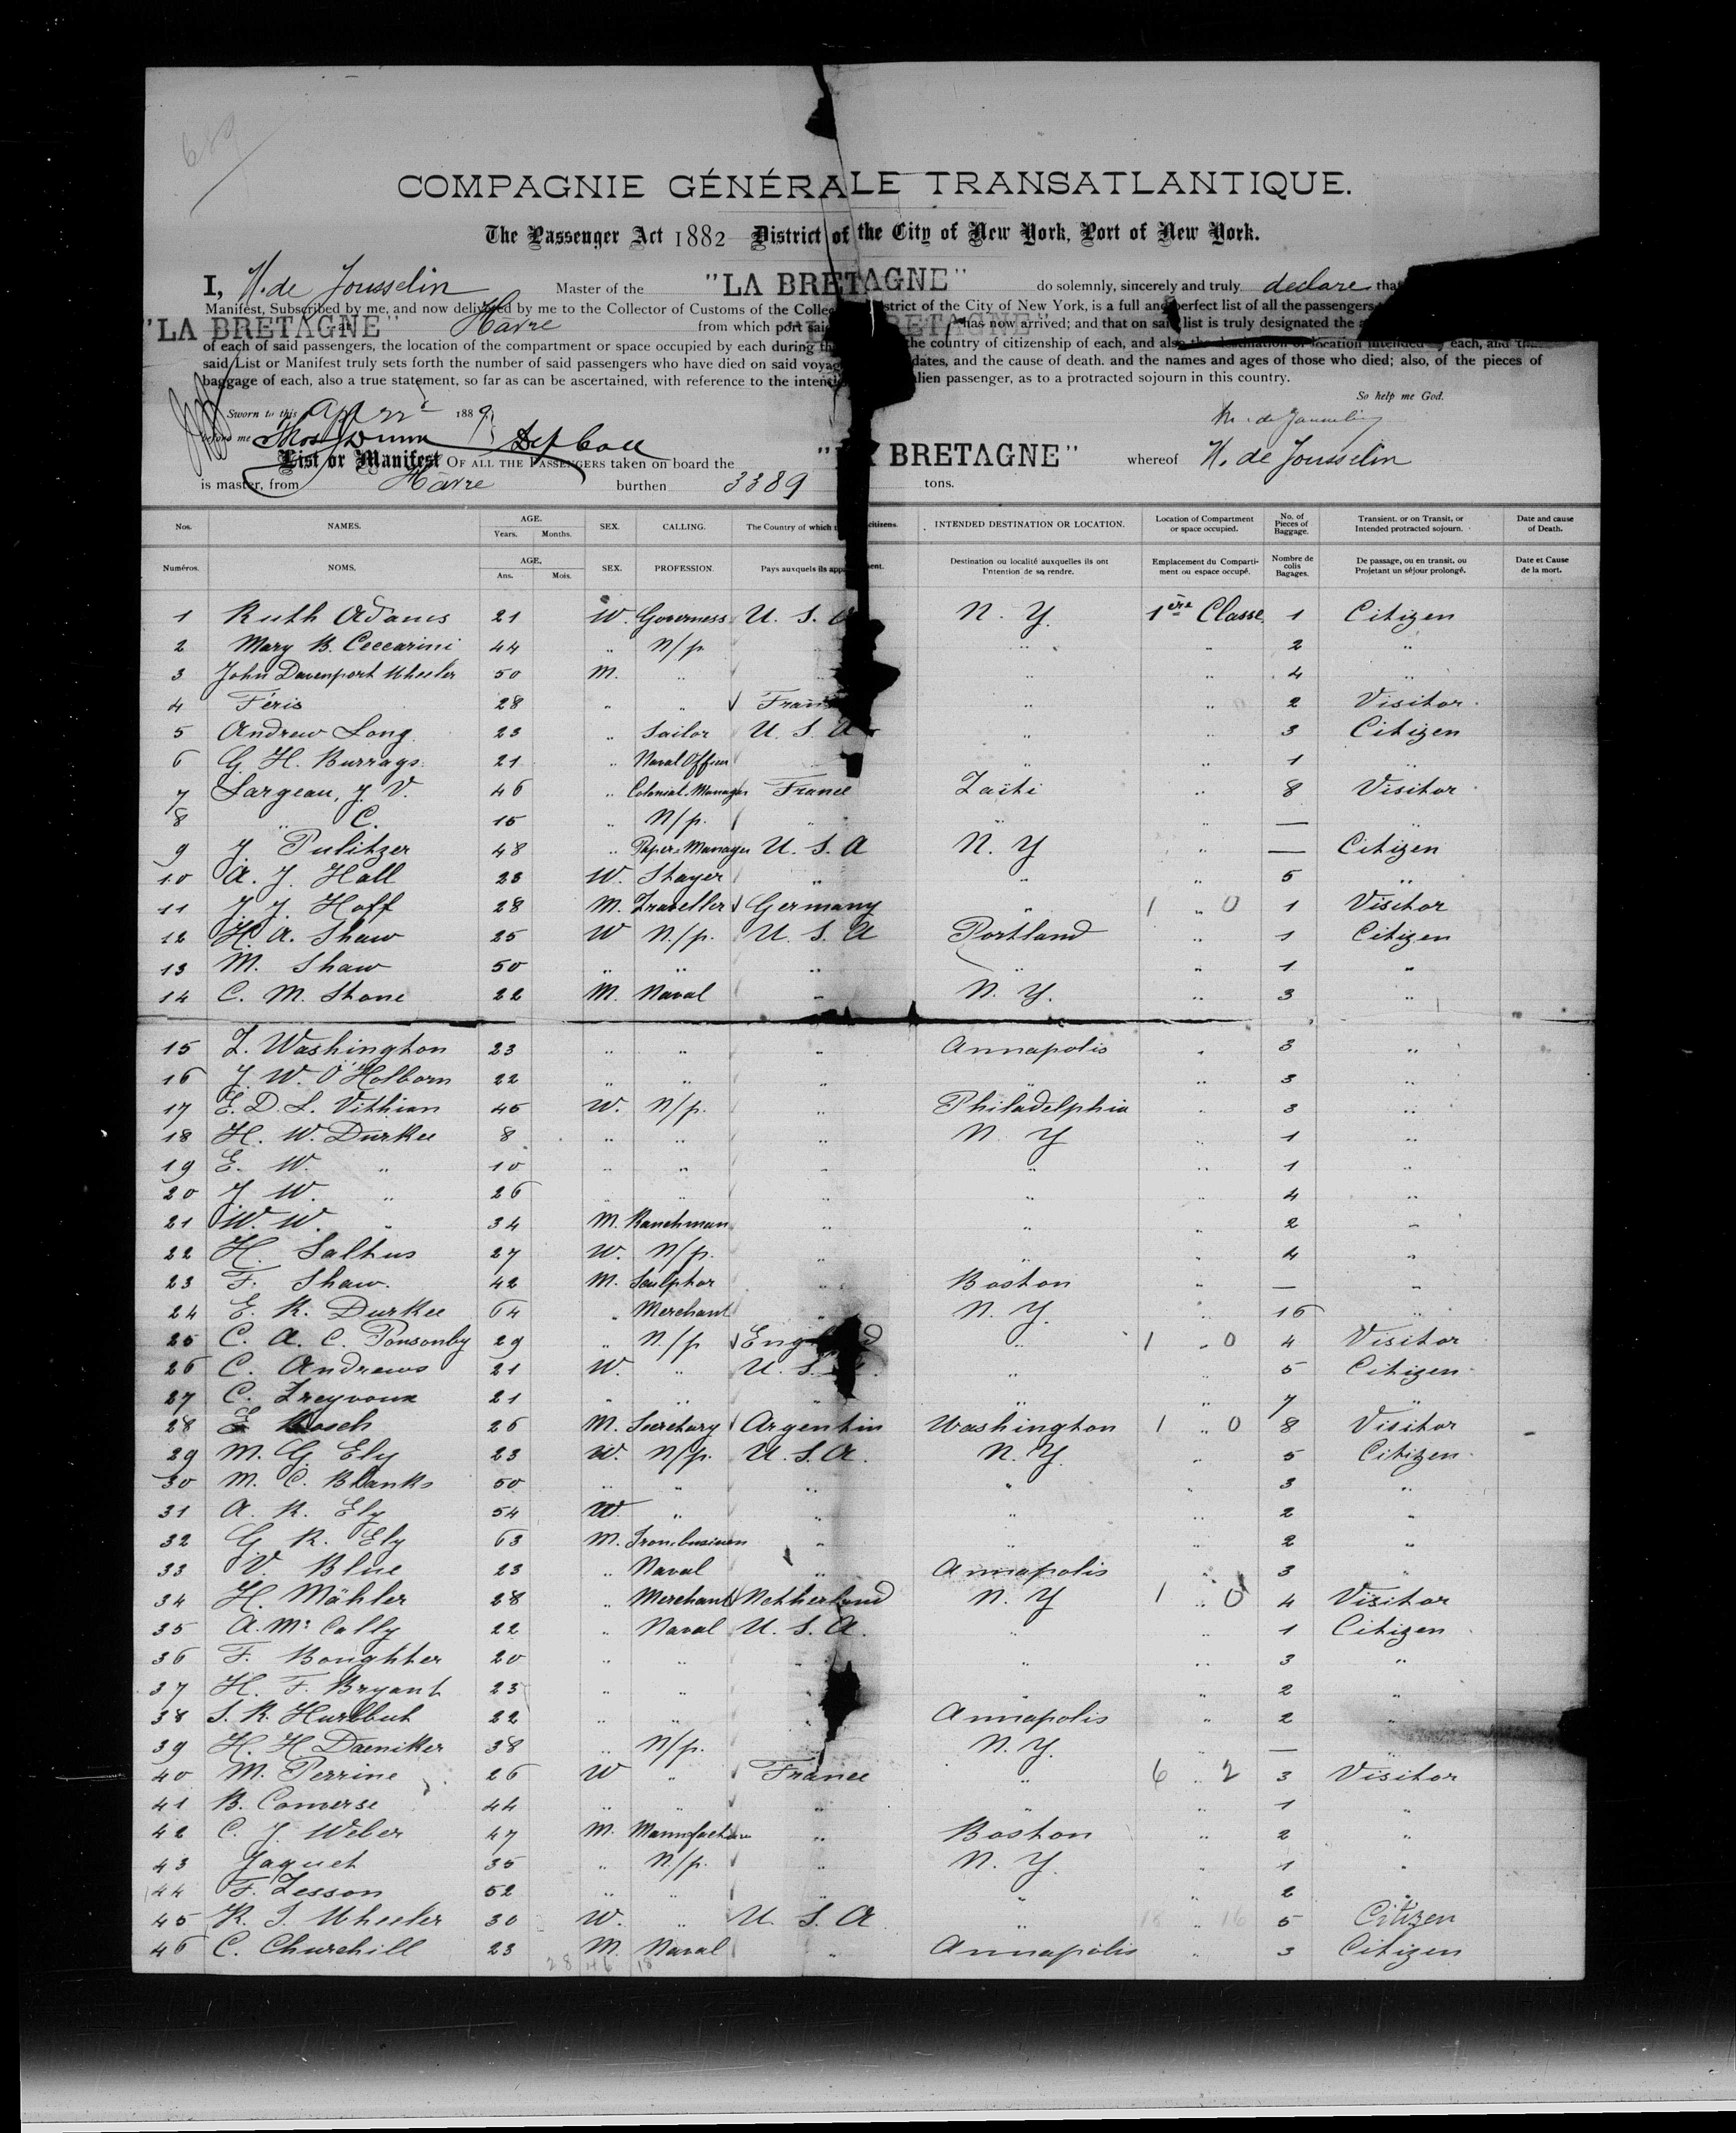 689
COMPAGNIE GÉNÉRALE TRANSATLANTIQUE.
The Passenger Act 1882 District of the City of New York, Port of New York.
I, H. de Jousselin Master of the "LA BRETAGNE" do solemnly, sincerely and truly declare that
Manifest, Subscribed by me, and now delivered by me to the Collector of Customs of the Collec strict of the City of New York, is a full and perfect list of all the passengers
"LA BRETAGNE" Havre from which port sai BRETAGNE" has now arrived; and that on said list is truly designated the
of each of said passengers, the location of the compartment or space occupied by each during th the country of citizenship of each, and also the destination or location intended by each, and th
said List or Manifest truly sets forth the number of said passengers who have died on said voyag dates, and the cause of death. and the names and ages of those who died; also, of the pieces of
baggage of each, also a true statement, so far as can be ascertained, with reference to the intenti alien passenger, as to a protracted sojourn in this country.
So help me God.
Sworn to this Apl 22d 1889
before me Thos Dunn Dep Coll
List or Manifest OF ALL THE PASSENGERS taken on board the "LA BRETAGNE" whereof H. de Jousselin
is master, from Havre burthen 3389 tons.
Nos. NAMES. AGE. Years. Months. SEX. CALLING. The Country of which citizens. INTENDED DESTINATION OR LOCATION. Location of Compartment or space occupied. No. of Pieces of Baggage. Transient. or on Transit, or Intended protracted sojourn. Date and cause of Death.
Numéros. NOMS. AGE. Ans. Mois. SEX. PROFESSION. Pays auxquels ils appa nent. Destination ou localité auxquelles ils ont l'intention de se rendre. Emplacement du Compartiment ou espace occupé. Nombre de colis Bagages. De passage, ou en transit. ou Projetant un séjour prolongé. Date et Cause de la mort.
1 Ruth Adams 21 W. Governess U. S. A N. Y. 1ère Classe 1 Citizen
2 Mary B. Ceccarini 44 " n/p " " " 2 "
3 John Davenport Wheeler 50 M. " " " 4 "
4 Féris 28 " " Fran " " 2 Visitor
5 Andrew Long 23 " Sailor U. S. A " " 3 Citizen
6 G. H. Burrags 21 " Naval Officer " " 1 "
7 Largeau, J. V. 46 " Colonial-Manager France Taïti " 8 Visitor
8 " C. 15 " n/p. " " " — "
9 J. Pulitzer 48 " Paper-Manager U. S. A N. Y " — Citizen
10 A. J. Hall 23 W. Stayer " " " 5 "
11 J. J. Hoff 28 M. Traveller Germany " 1 " 0 1 Visitor
12 H. A. Shaw 25 W n/p. U. S. A Portland " 1 Citizen
13 M. Shaw 50 " " " " " 1 "
14 C. M. Stone 22 M. Naval " N. Y. " 3 "
15 L. Washington 23 " " " Annapolis " 3 "
16 J. W. O'Holborn 22 " " " " " 3 "
17 E. D. L. Vithian 45 W. n/p. " Philadelphia " 3 "
18 H. W. Durkee 8 " " " N. Y " 1 "
19 E. W. " 10 " " " " " 1 "
20 J. W. " 26 " " " " " 4 "
21 W. W. " 34 M. Ranchman " " " 2 "
22 H. Saltus 27 W. n/p. " " " 4 "
23 F. Shaw. 42 M. Sculptor " Boston " — "
24 E. R. Durkee 64 " Merchant " N. Y. " 16 "
25 C. A. C. Ponsonby 29 " n/p Eng d " 1 " 0 4 Visitor
26 C. Andrews 21 W. " U. S. " " 5 Citizen
27 C. Treyvoux 21 " " " " " 7 "
28 E Bosch 26 M. Secretary Argentin Washington 1 " 0 8 Visitor
29 M. G. Ely 23 W. n/p. U. S. A. N. Y. " 5 Citizen
30 M. C. Blanks 50 " " " " " 3 "
31 A. R. Ely 54 W. " " " " 2 "
32 G. R. Ely 63 M. Iron-business " " " 2 "
33 V. Blue 23 " Naval " Annapolis " 3 "
34 H. Mähler 28 " Merchant Netherland N. Y 1 " 0 4 Visitor
35 A. Mc Cally 22 " Naval U. S. A. " " 1 Citizen
36 F. Boughter 20 " " " " " 3 "
37 H. F. Bryant 23 " " " " 2 "
38 S. R. Hurlbut 22 " " " Annapolis " 2 "
39 H. H. Daeniker 38 " n/p. N. Y. — "
40 M. Perrine 26 W " France " 6 " 2 3 Visitor
41 B. Converse 44 " " " " " 1 "
42 C. J. Weber 47 M. Manufacture " Boston " 2 "
43 Jaquet 35 " n/p. " N. Y. " 1 "
44 F. Lesson 52 " " " " " 2 "
45 R. S. Wheeler 30 W. " U. S. A. " 18 " 16 5 Citizen
46 C. Churchill 23 M. Naval " Annapolis " 3 Citizen
28 46 18